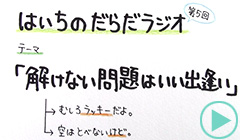 はいちのだらだラジオ 第5回
テーマ
「解けない問題はいい出逢い」
むしろラッキーだよ。
空はとべないけど。